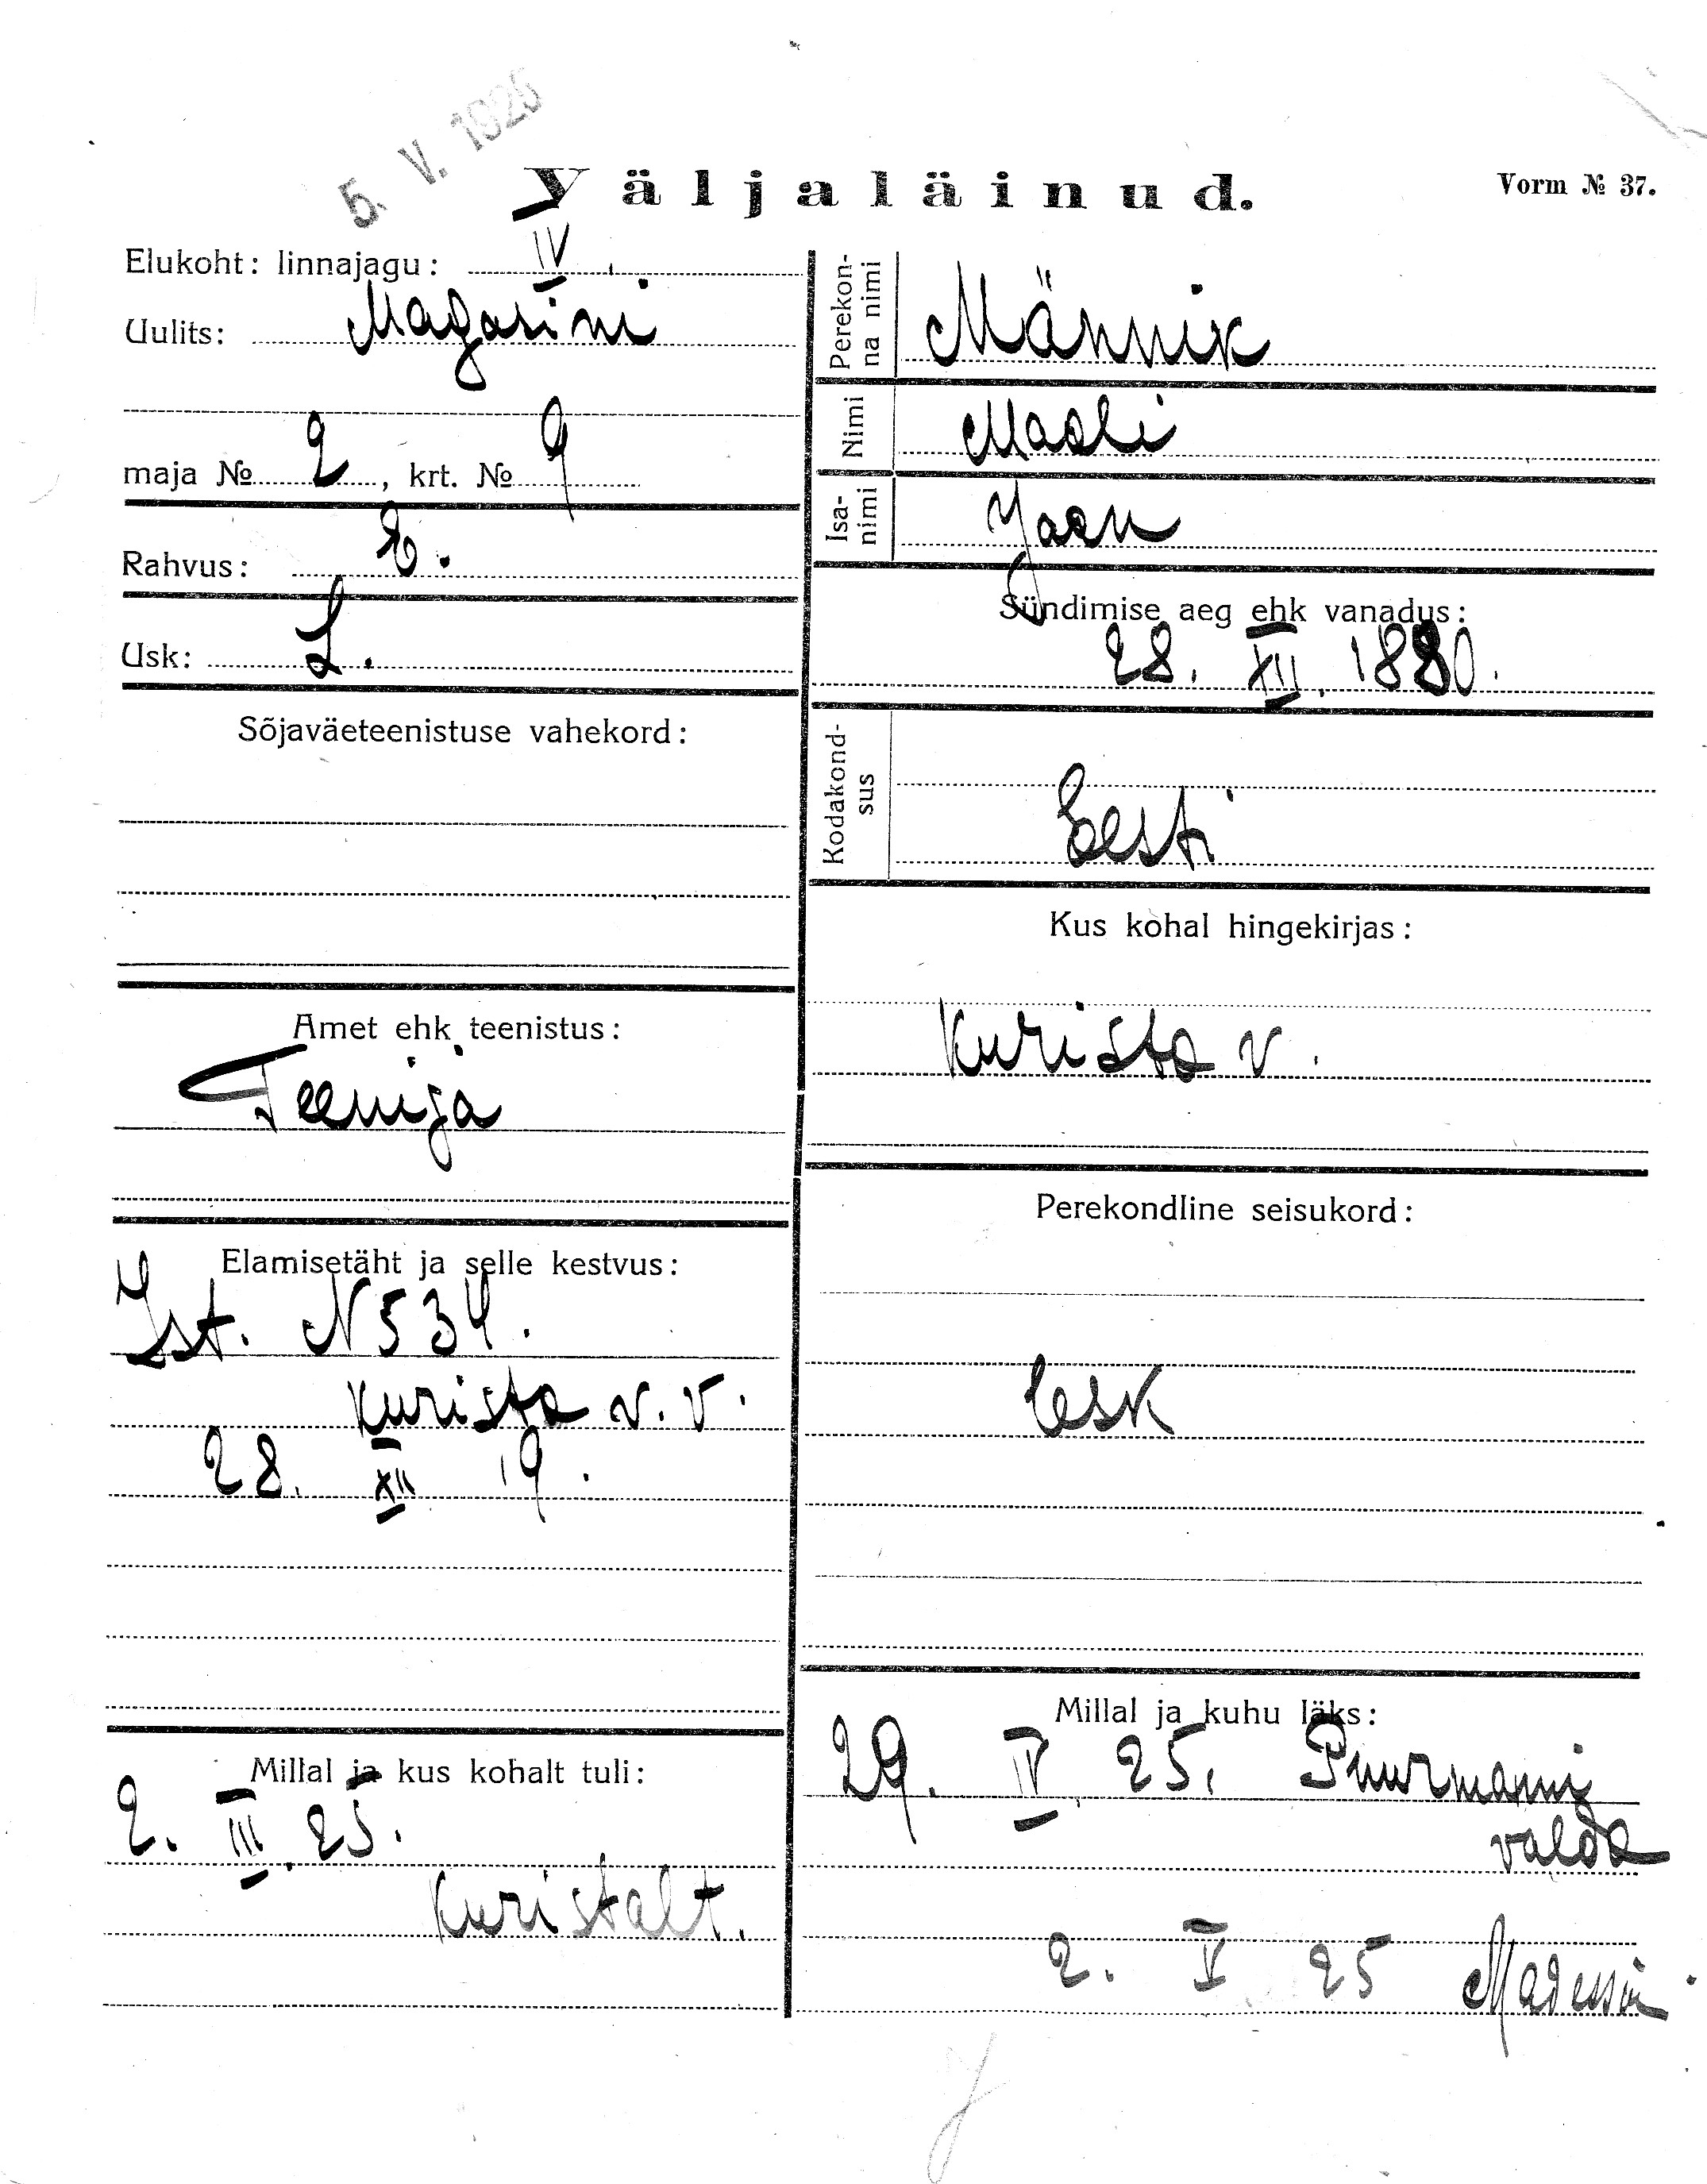 5. V. 1925
Väljaläinud.
Vorm № 37.
Elukoht: linnajagu: IV
Uulits: Magasini
maja № 2, krt. № 9
Rahvus: E.
Usk: L.
Sõjaväeteenistuse vahekord:
Amet ehk teenistus:
Teenija
Elamisetäht ja selle kestvus:
Ist. N 534.
Kurista v. v.
28. XII 19.
Millal ja kus kohalt tuli:
2. III. 25.
Kuristalt.
Perekonna nimi
Männik
Nimi
Maali
Isanimi
Jaan
Sündimise aeg ehk vanadus:
28. XII. 1880.
Kodakondsus
Eesti
Kus kohal hingekirjas:
Kurista v.
Perekondline seisukord:
lesk
Millal ja kuhu läks:
29. IV. 25. Puurmanni
valda
2. V 25